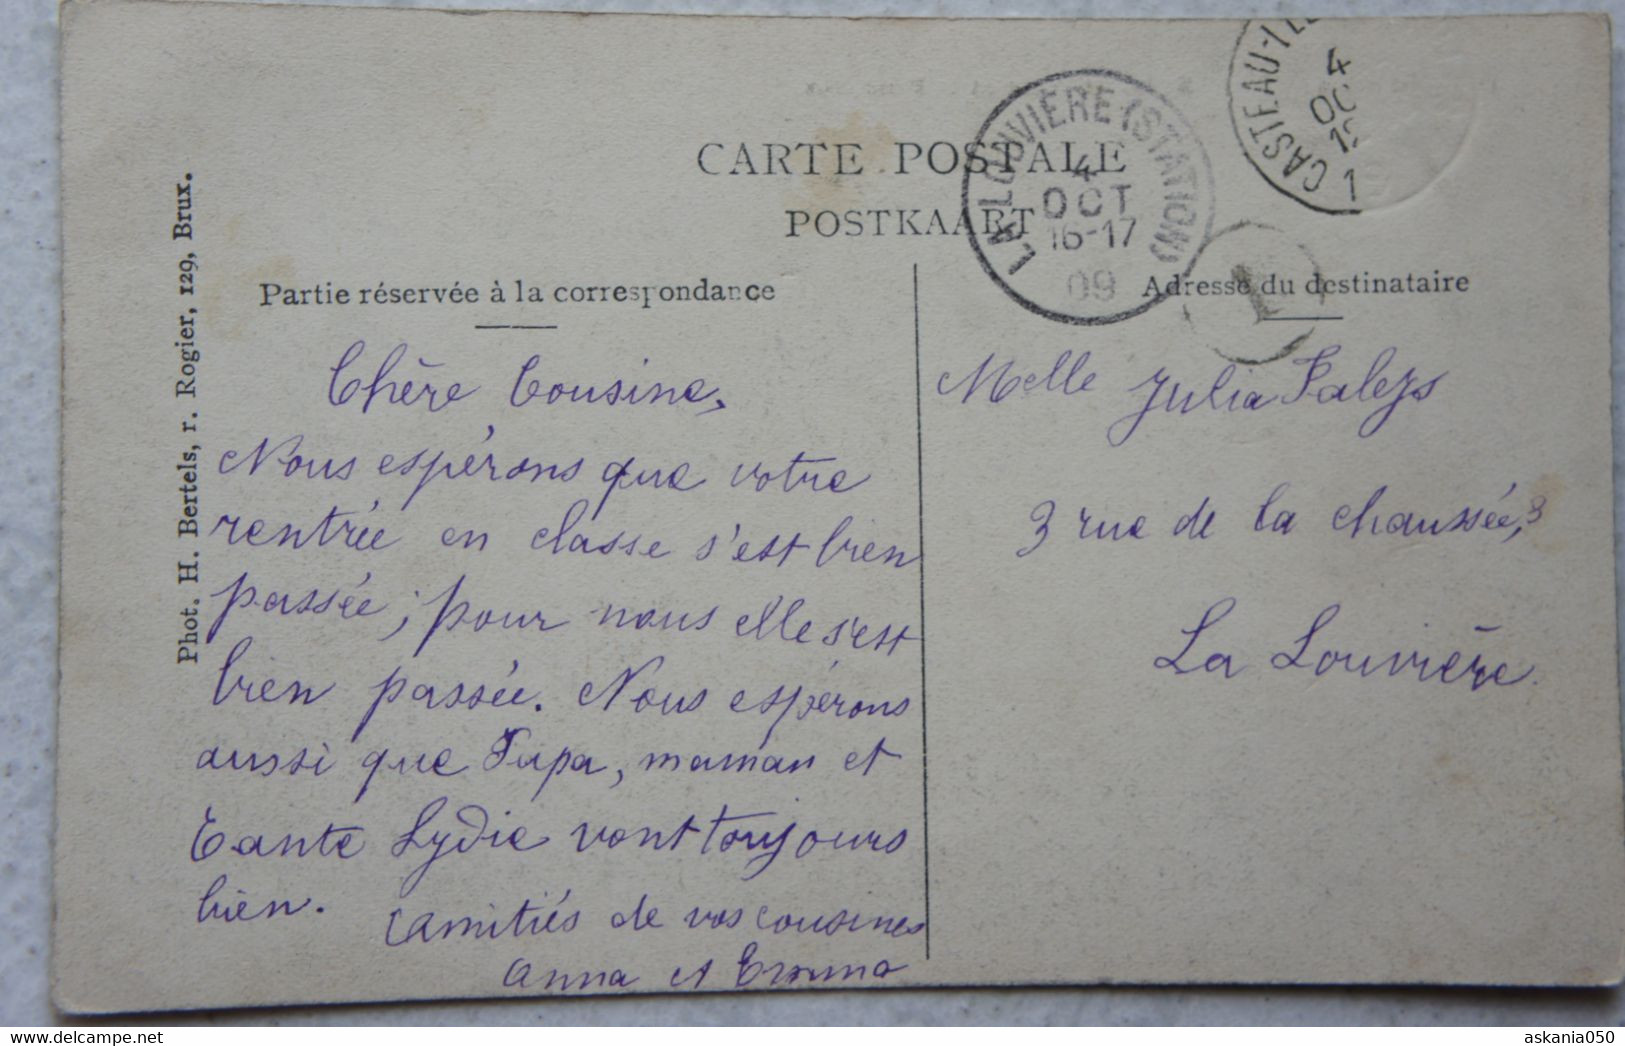 CARTE POSTALE
POSTKAART
Partie réservée à la correspondance
Adresse du destinataire
Phot. H. Bertels, r. Rogier, 129, Brux.
LA LOUVIÈRE (STATION)
4
OCT
16-17
09
CASTEAU-(LE
4
OC
19
1
1
Chère Cousine,
Nous espérons que votre
rentrée en classe s'est bien
passée; pour nous elle s'est
bien passée. Nous espérons
aussi que Papa, maman et
Tante Lydie vont toujours
bien.
Amitiés de vos cousines
Anna et Emma
Melle Julia Paleys
3 rue de la chaussée, 3
La Louvière.
hippostcard.com
askania050